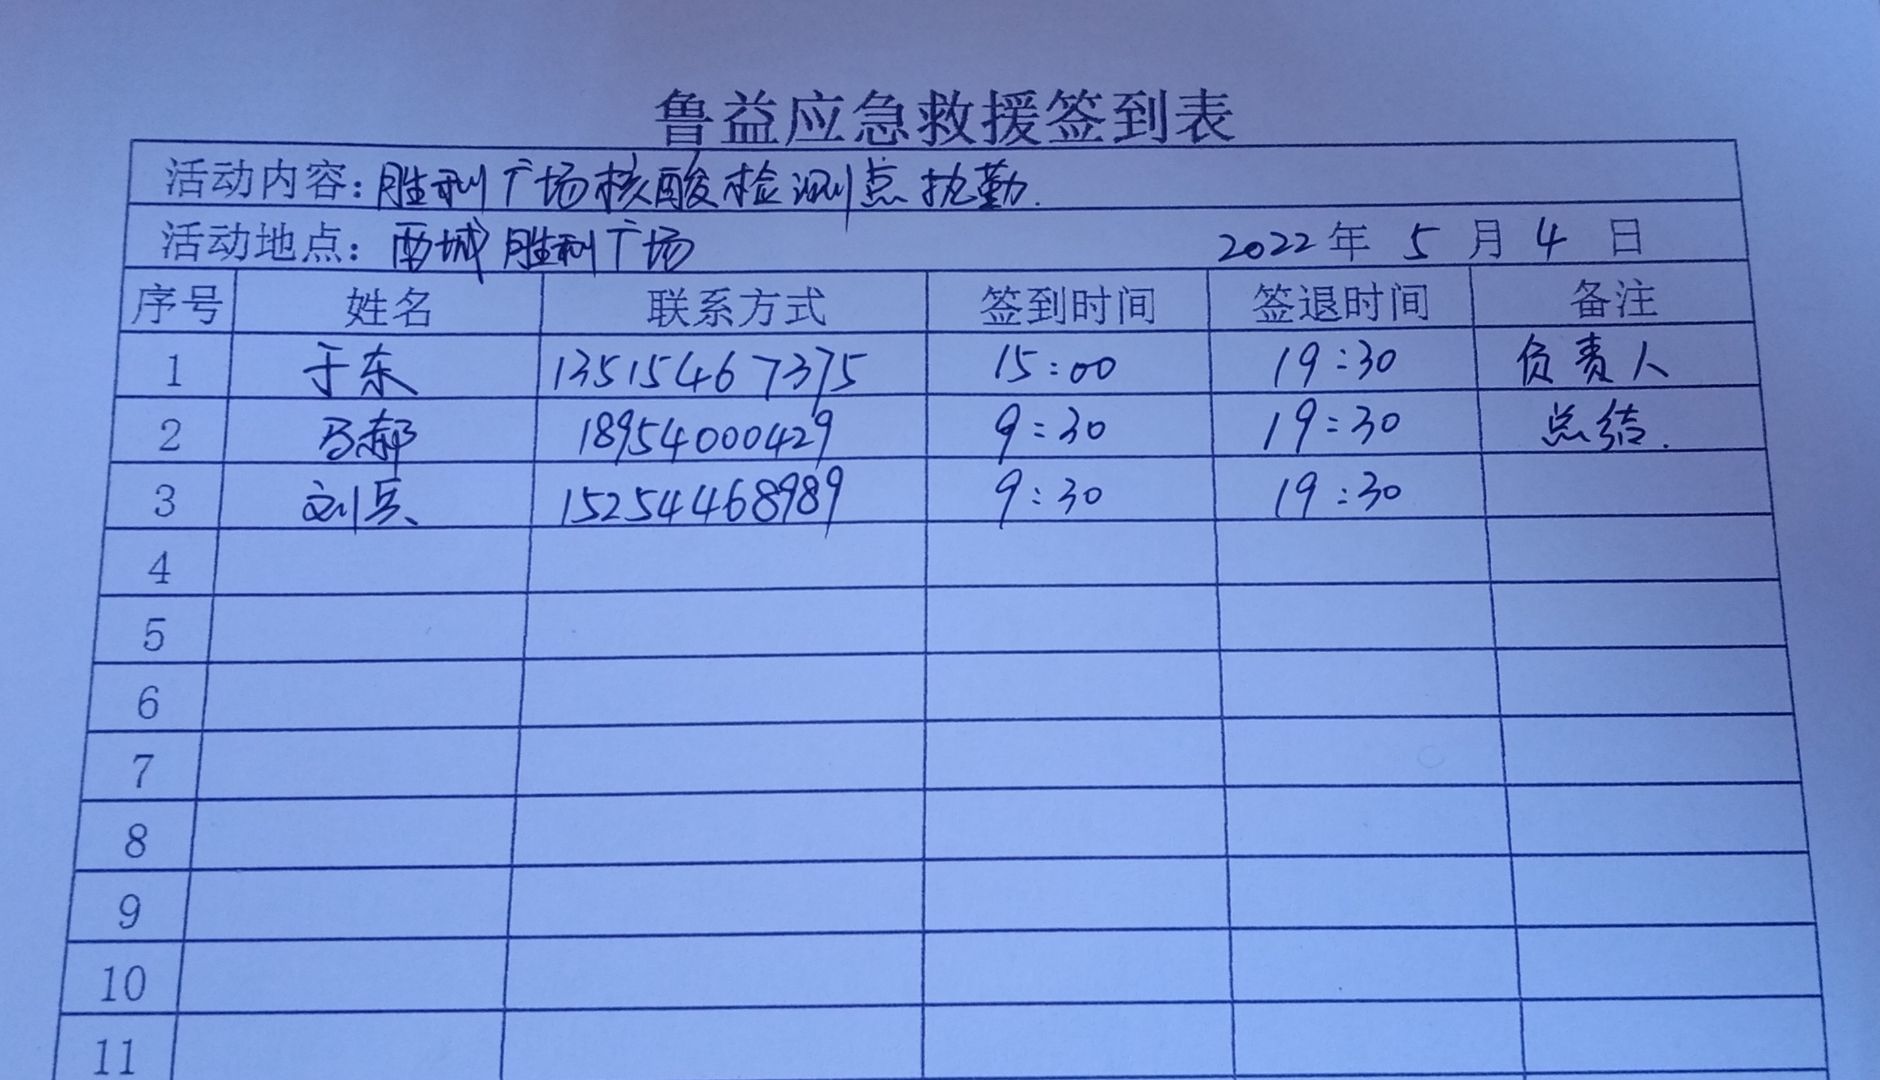 鲁益应急救援签到表
活动内容：胜利广场核酸检测点执勤.
活动地点：西城胜利广场 2022年 5 月 4 日
序号 姓名 联系方式 签到时间 签退时间 备注
1 于东 13515467375 15:00 19:30 负责人
2 马郝 18954000429 9:30 19:30 总结.
3 刘兵 15254468989 9:30 19:30
4
5
6
7
8
9
10
11